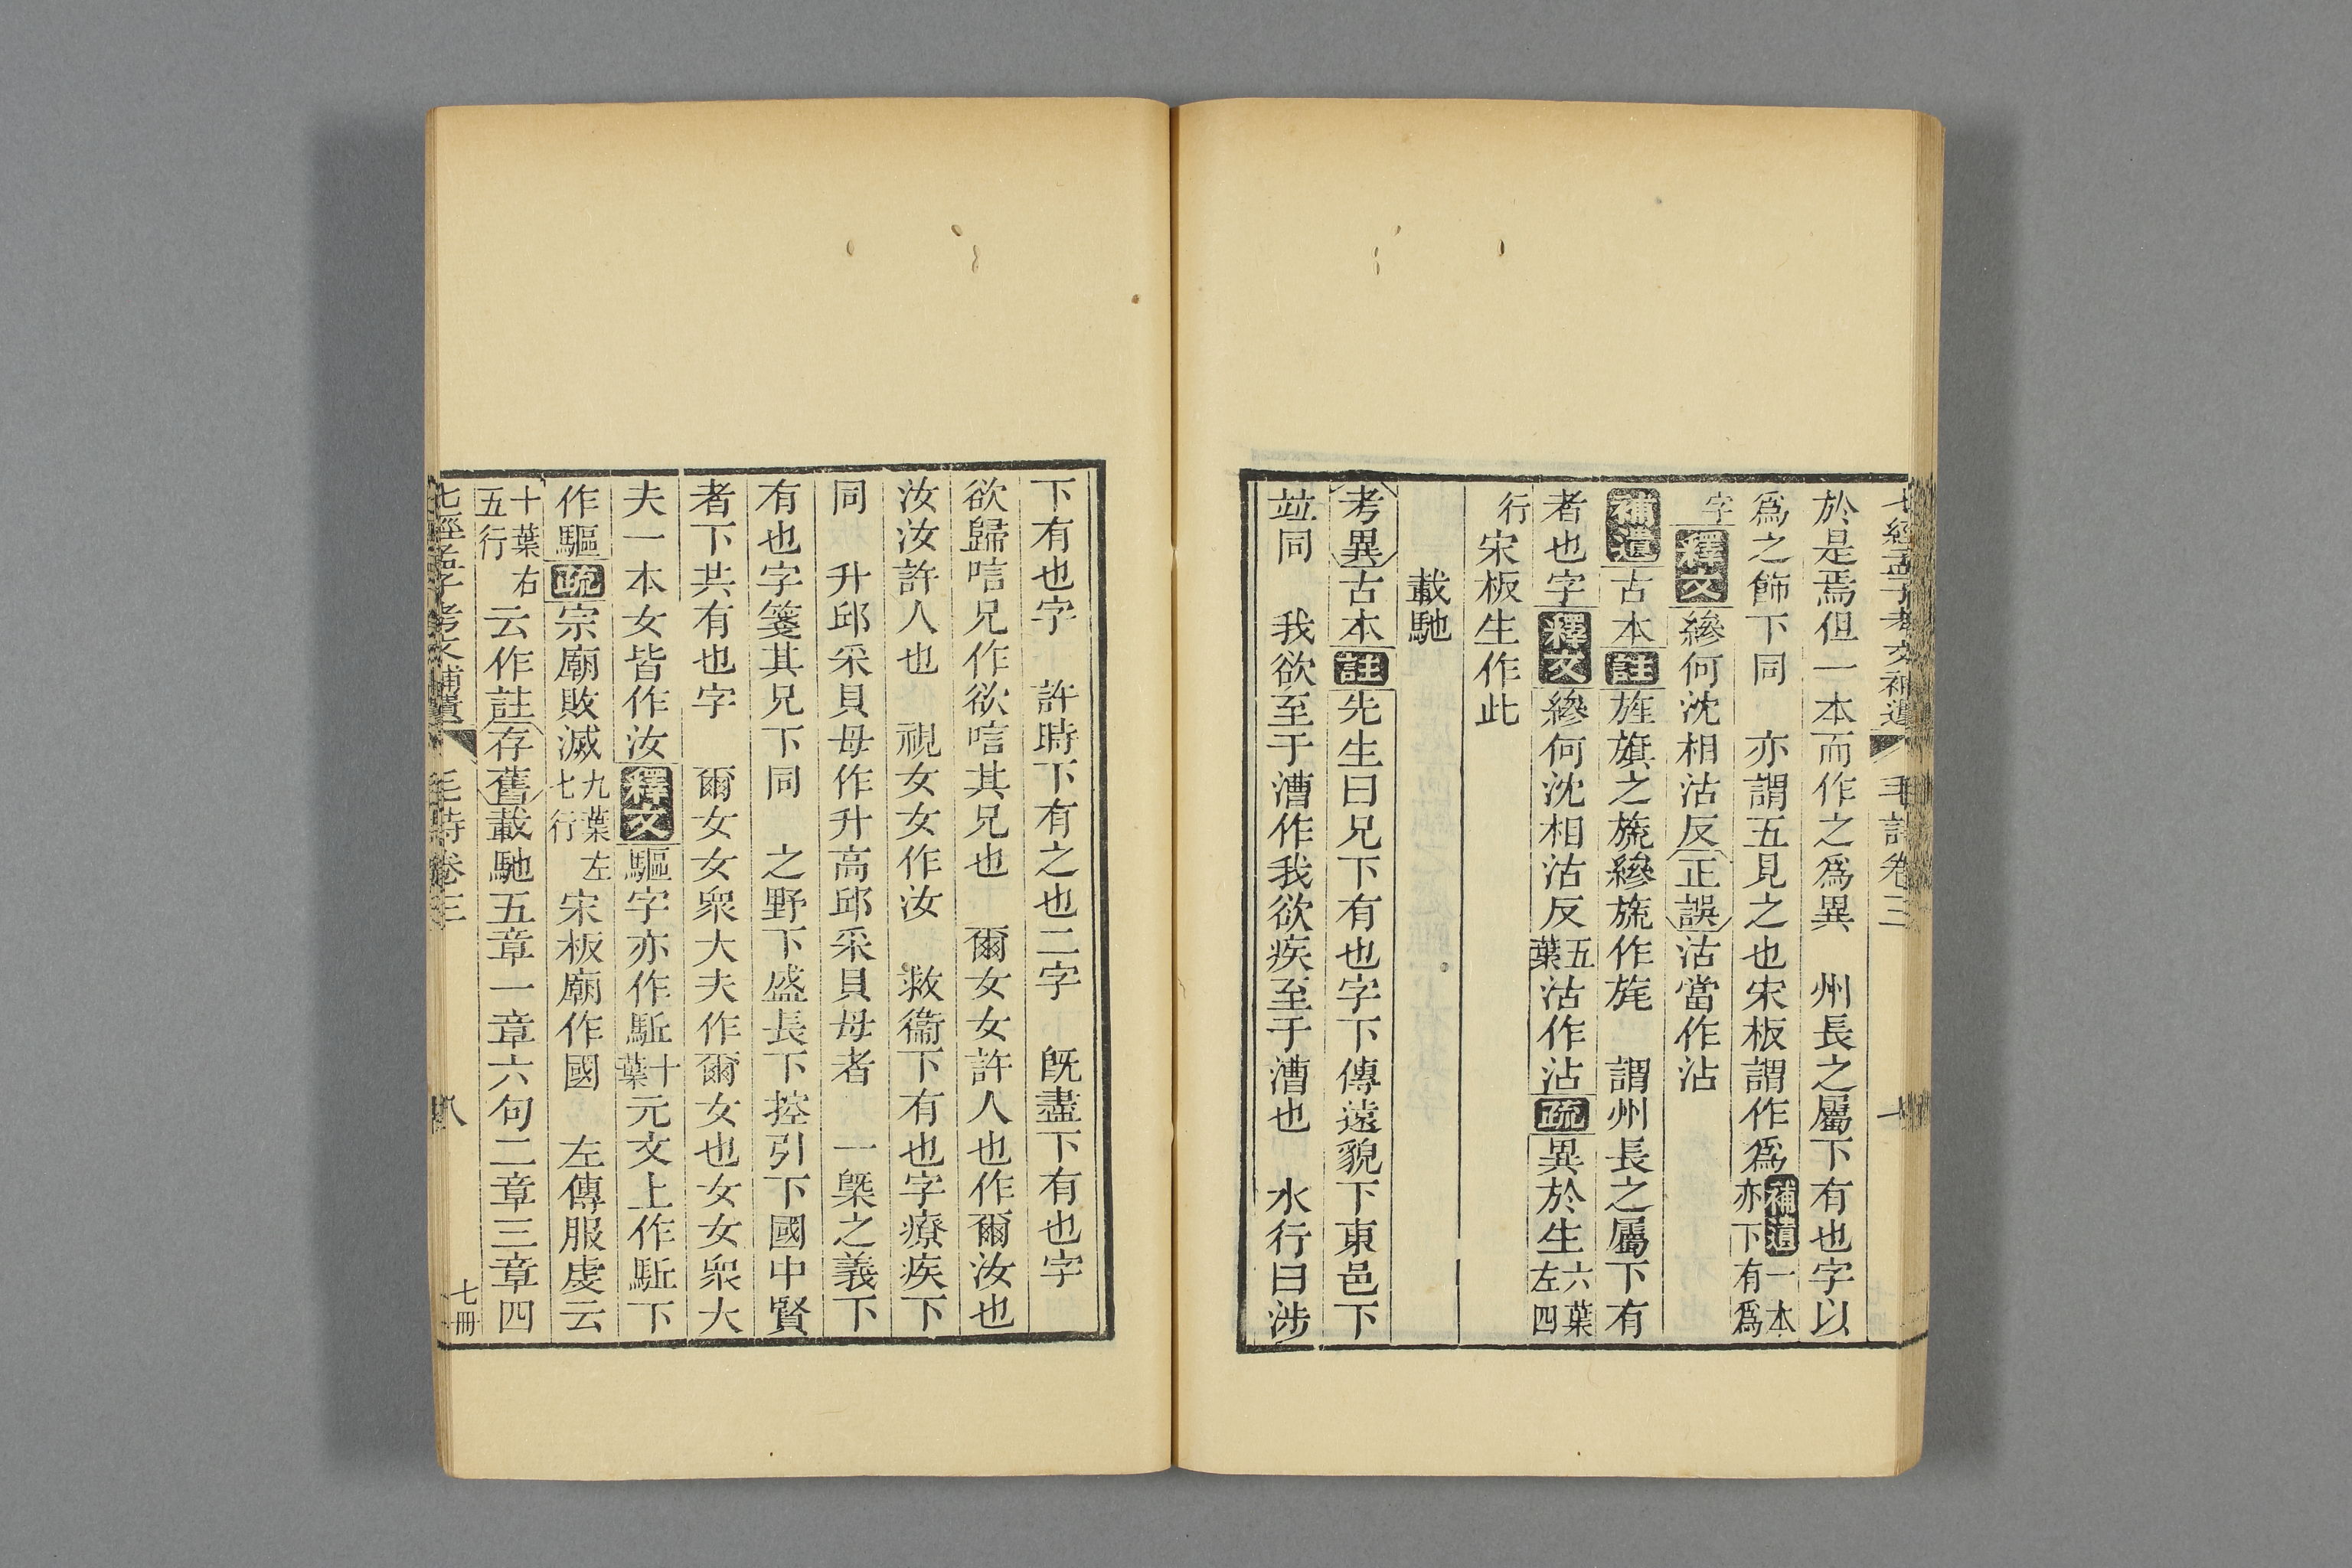 七經孟子考文補遺 毛詩卷三
於是焉但一本而作之爲異　州長之屬下有也字以
爲之飾下同　亦謂五見之也宋板謂作爲補遺一本亦下有爲
字釋文縿何沈相沽反正誤沽當作沾
補遺古本註旌旗之旒縿旒作旄　謂州長之屬下有
者也字釋文縿何沈相沽反五葉沽作沾疏異於生六葉左四
行宋板生作此
載馳
考異古本註先生曰兄下有也字下傳遠貌下東邑下
竝同　我欲至于漕作我欲疾至于漕也　水行曰涉
下有也字　許時下有之也二字　旣盡下有也字
欲歸唁兄作欲唁其兄也　爾女女許人也作爾汝也
汝汝許人也　視女女作汝　救衞下有也字療疾下
同　升邱采貝母作升高邱采貝母者　一槩之義下
有也字箋其兄下同　之野下盛長下控引下國中賢
者下共有也字　爾女女衆大夫作爾女也女女衆大
夫一本女皆作汝釋文驅字亦作駈十葉元文上作駈下
作驅疏宗廟敗滅九葉左七行宋板廟作國　左傳服虔云
十葉右五行云作註存舊載馳五章一章六句二章三章四
七經孟子考文補遺 毛詩卷三 八 七冊